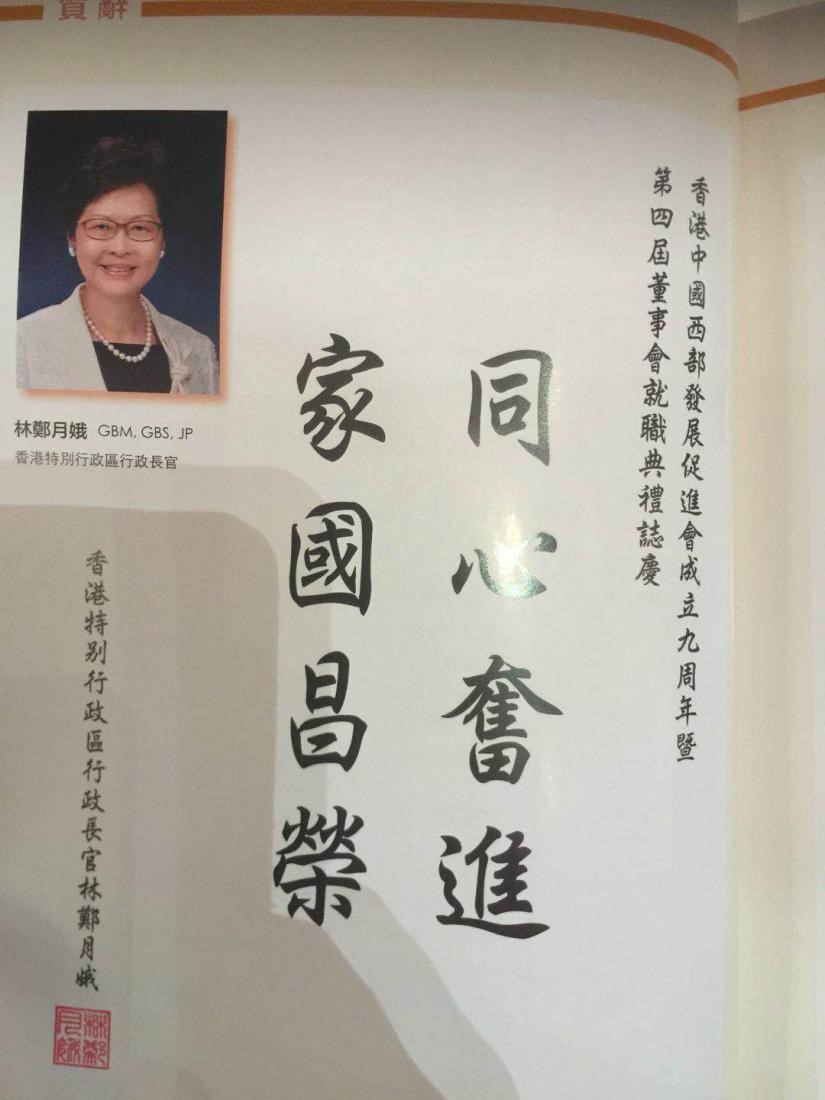 賀辭
香港中國西部發展促進會成立九周年暨
第四屆董事會就職典禮誌慶
同心奮進
家國昌榮
林鄭月娥 GBM, GBS, JP
香港特別行政區行政長官
香港特别行政區行政長官林鄭月娥
林鄭月娥